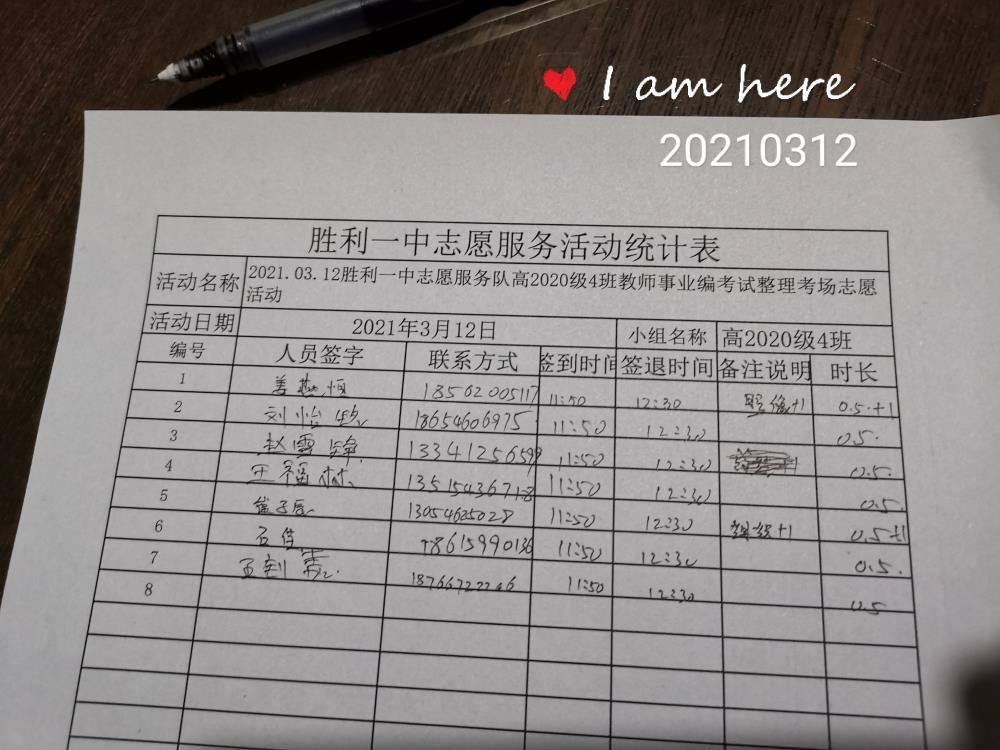 I am here
20210312
胜利一中志愿服务活动统计表
活动名称 2021.03.12胜利一中志愿服务队高2020级4班教师事业编考试整理考场志愿
活动
活动日期 2021年3月12日 小组名称 高2020级4班
编号 人员签字 联系方式 签到时间 签退时间 备注说明 时长
1 姜 恒 18562005117 11:50 12:30 +1 0.5.+1
2 刘怡 18654606975 11:50 12:30 0.5.
3 赵雪 13341256599 11:50 12:30 0.5.
4 王福林 13515436718 11:50 12:30 0.5.
5 崔子辰 13054625028 11:50 12:30 +1 0.5+1
6 石 18615990136 11:50 12:30 0.5.
7 18766722266 11:50 12:30 0.5
8